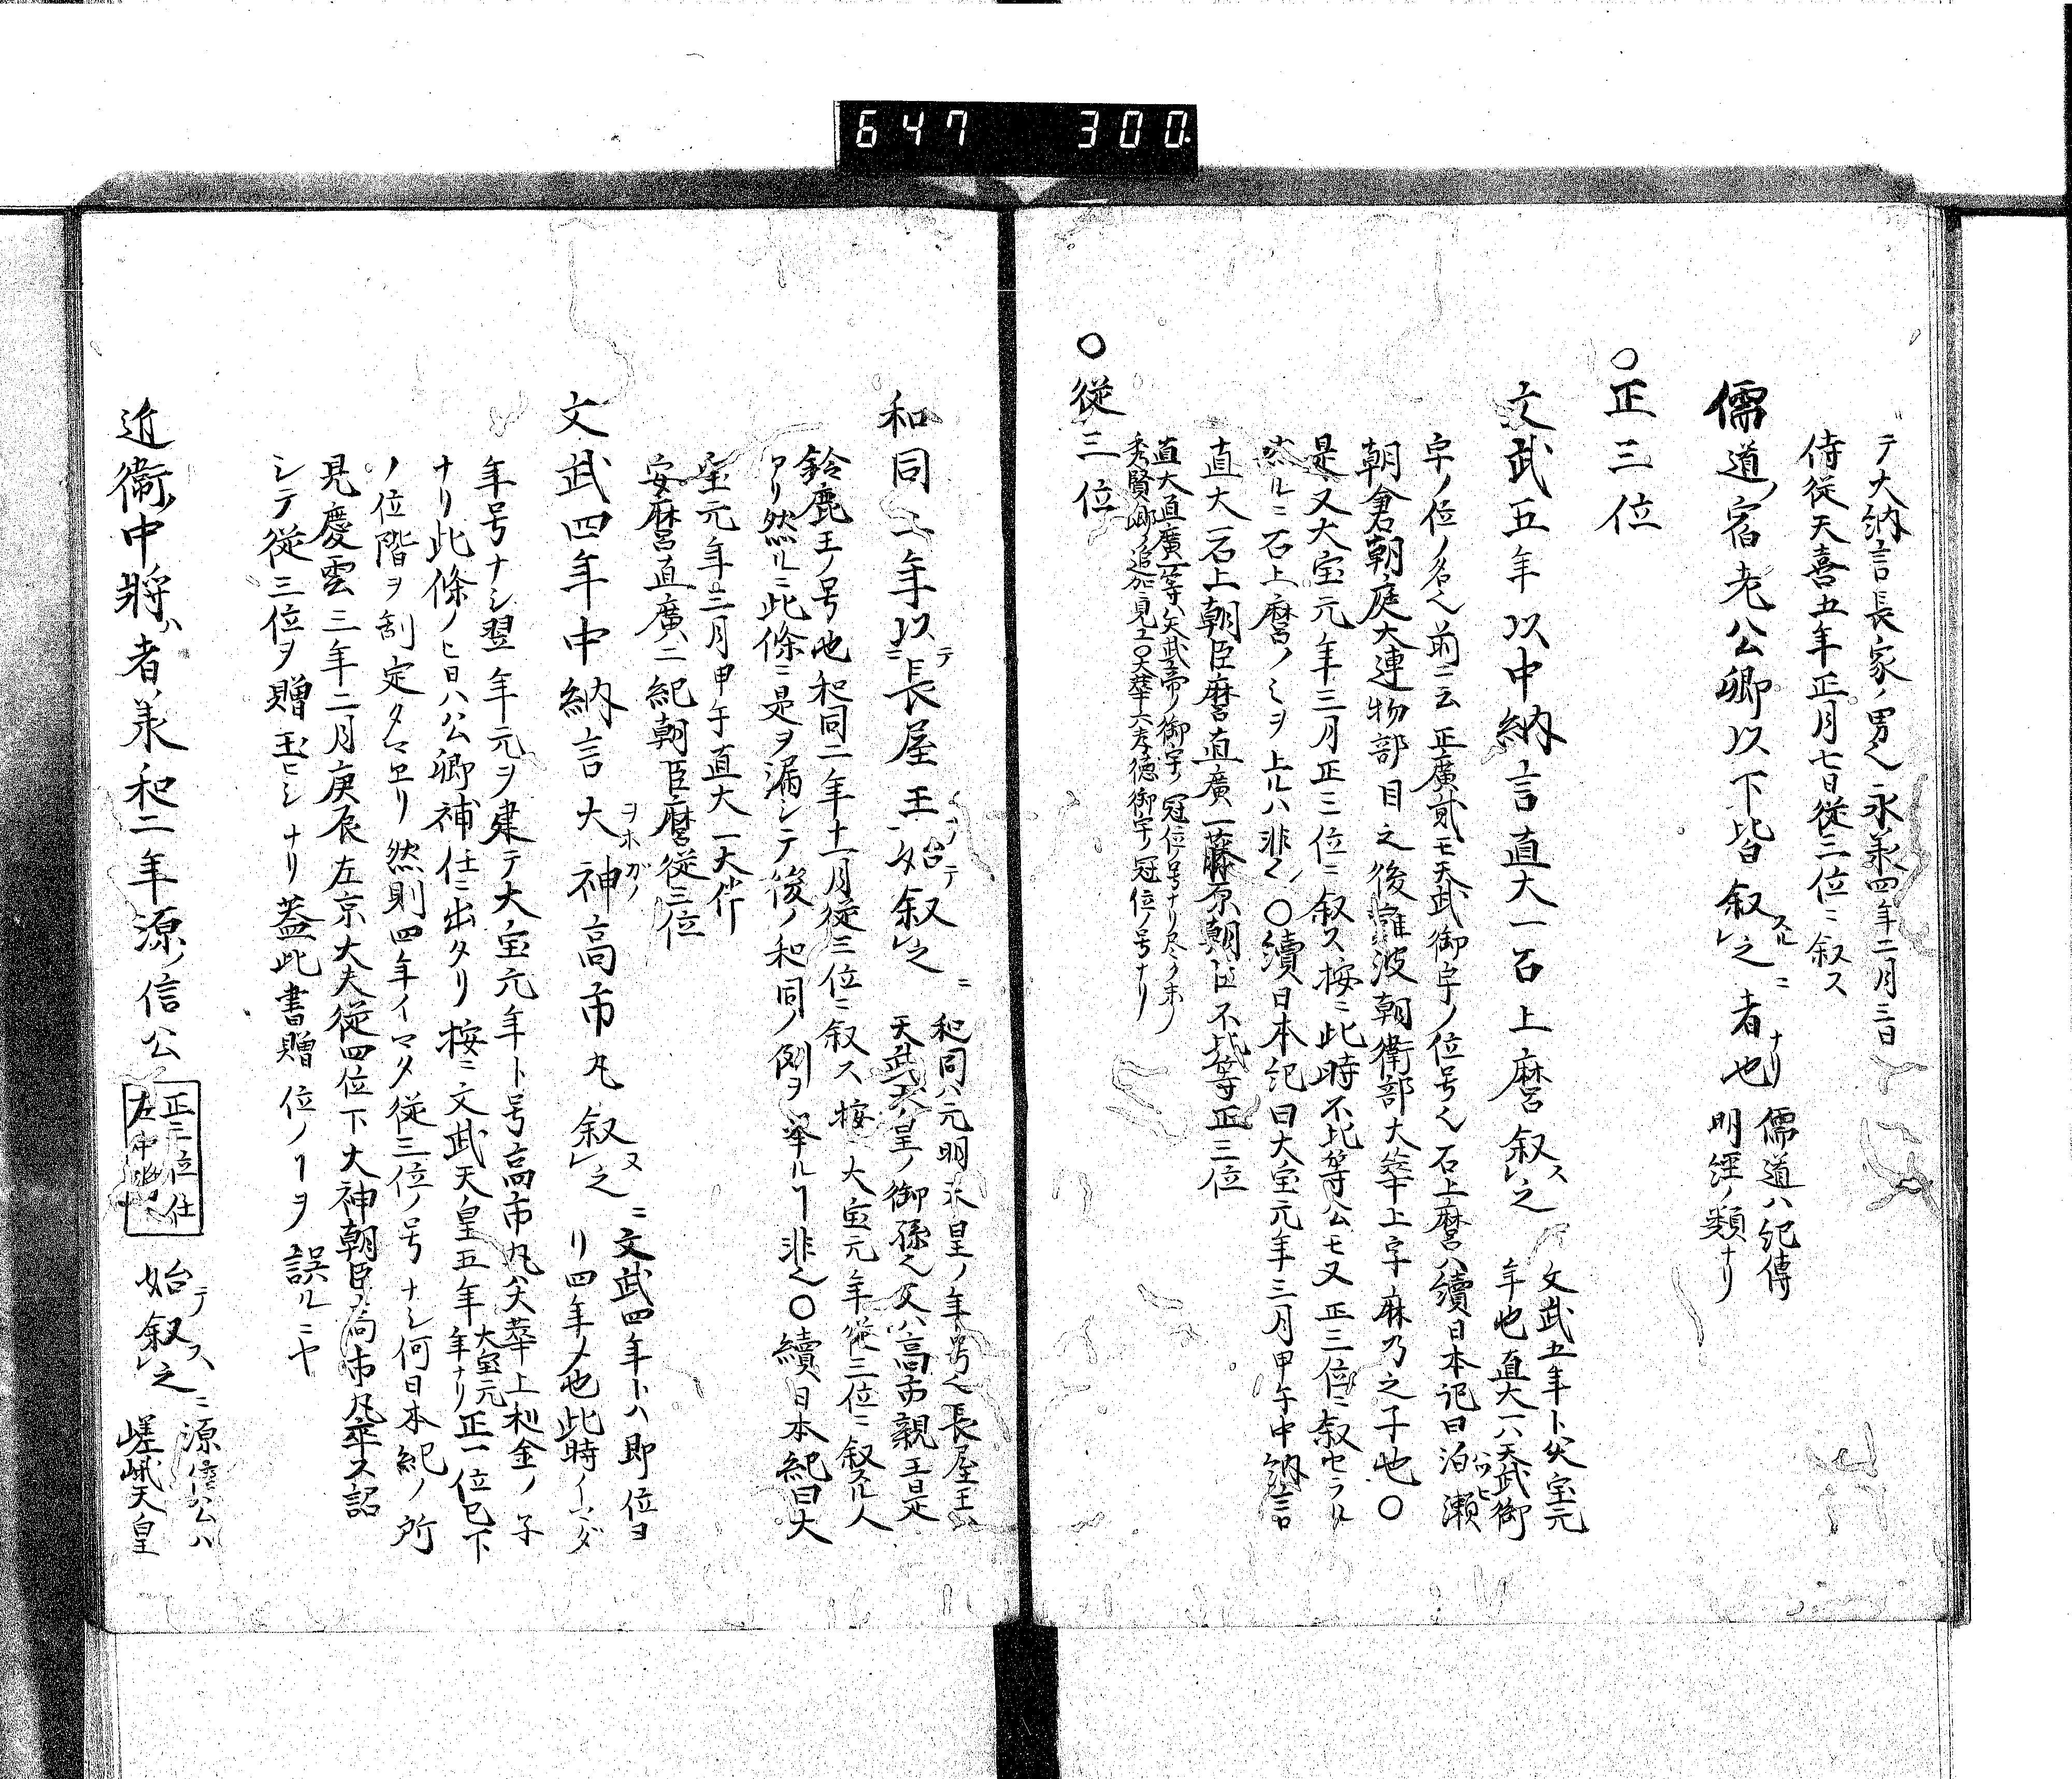 647 300
テ大納言長家ノ男也永承四年二月三日
侍従天喜五年正月七日従三位ニ叙ス
儒道ノ宿老公卿以下皆叙スルレ之ニ者也ナリ
儒道ハ紀傳
明經ノ類ナリ
○正三位
文武五年以中納言直大一石上麿叙スレ之
文武五年トハ大宝元
年也直大一ハ天武御
宇ノ位ノ名也前ニ云正廣貳モ天武御宇ノ位号也石上麿ハ續日本記曰泊瀬
朝倉朝庭大連物部目之後難波朝衛部大華上宇麻乃之子也○
是又大宝元年三月正三位ニ叙ス按ニ此時不比等公モ又正三位ニ叙セラル
然ルニ石上麿ノミヲ上ルハ非也○續日本記曰大宝元年三月甲午中納言
直大一石上朝臣麿直廣一藤原朝臣不比等正三位
直大直廣等ハ天武帝ノ御宇ノ冠位ノ号ナリ
秀賢卿ノ追加ニ見ユ○大華ハ孝徳御宇ノ冠位ノ号ナリ
○従三位
和同二年以テ長屋王ヲ始テ叙レ之ニ
和同ハ元明天皇ノ年号也長屋王ハ
天武天皇ノ御孫也父ハ高市親王是
鈴鹿王ノ号也和同二年十一月従三位ニ叙ス按ニ大宝元年従三位ニ叙スル人
アリ然ルニ此條ニ是ヲ漏シテ後ノ和同ノ例ヲ挙ルヿ非也○續日本紀曰大
宝元年三月甲午直大一大伴
安麿直廣二紀朝臣麿従三位
文武四年中納言大神ヲホガノ高市丸叙スレ之ニ
文武四年トハ即位ヨ
リ四年メ也此時ノイマダ
年号ナシ翌年年元ヲ建テ大宝元年ト号高市丸ハ大華上利金ノ子
ナリ此條ノヒ曰ハ公卿補任ニ出タリ按ニ文武天皇五年大宝元年ナリ正一位已下
ノ位階ヲ制定タマヱリ然則四年イマタ従三位ノ号ナシ何日本紀ノ所
見慶雲三年二月庚辰左京大夫従四位下大神朝臣高市丸卒ス詔
シテ従三位ヲ贈玉ヒシナリ蓋此書贈位ノヿヲ誤ルニヤ
近衛ノ中将ハ者承和二年源ノ信公
正三位任
左中将
始テ叙スレ之ニ
源信公ハ
嵯峨天皇